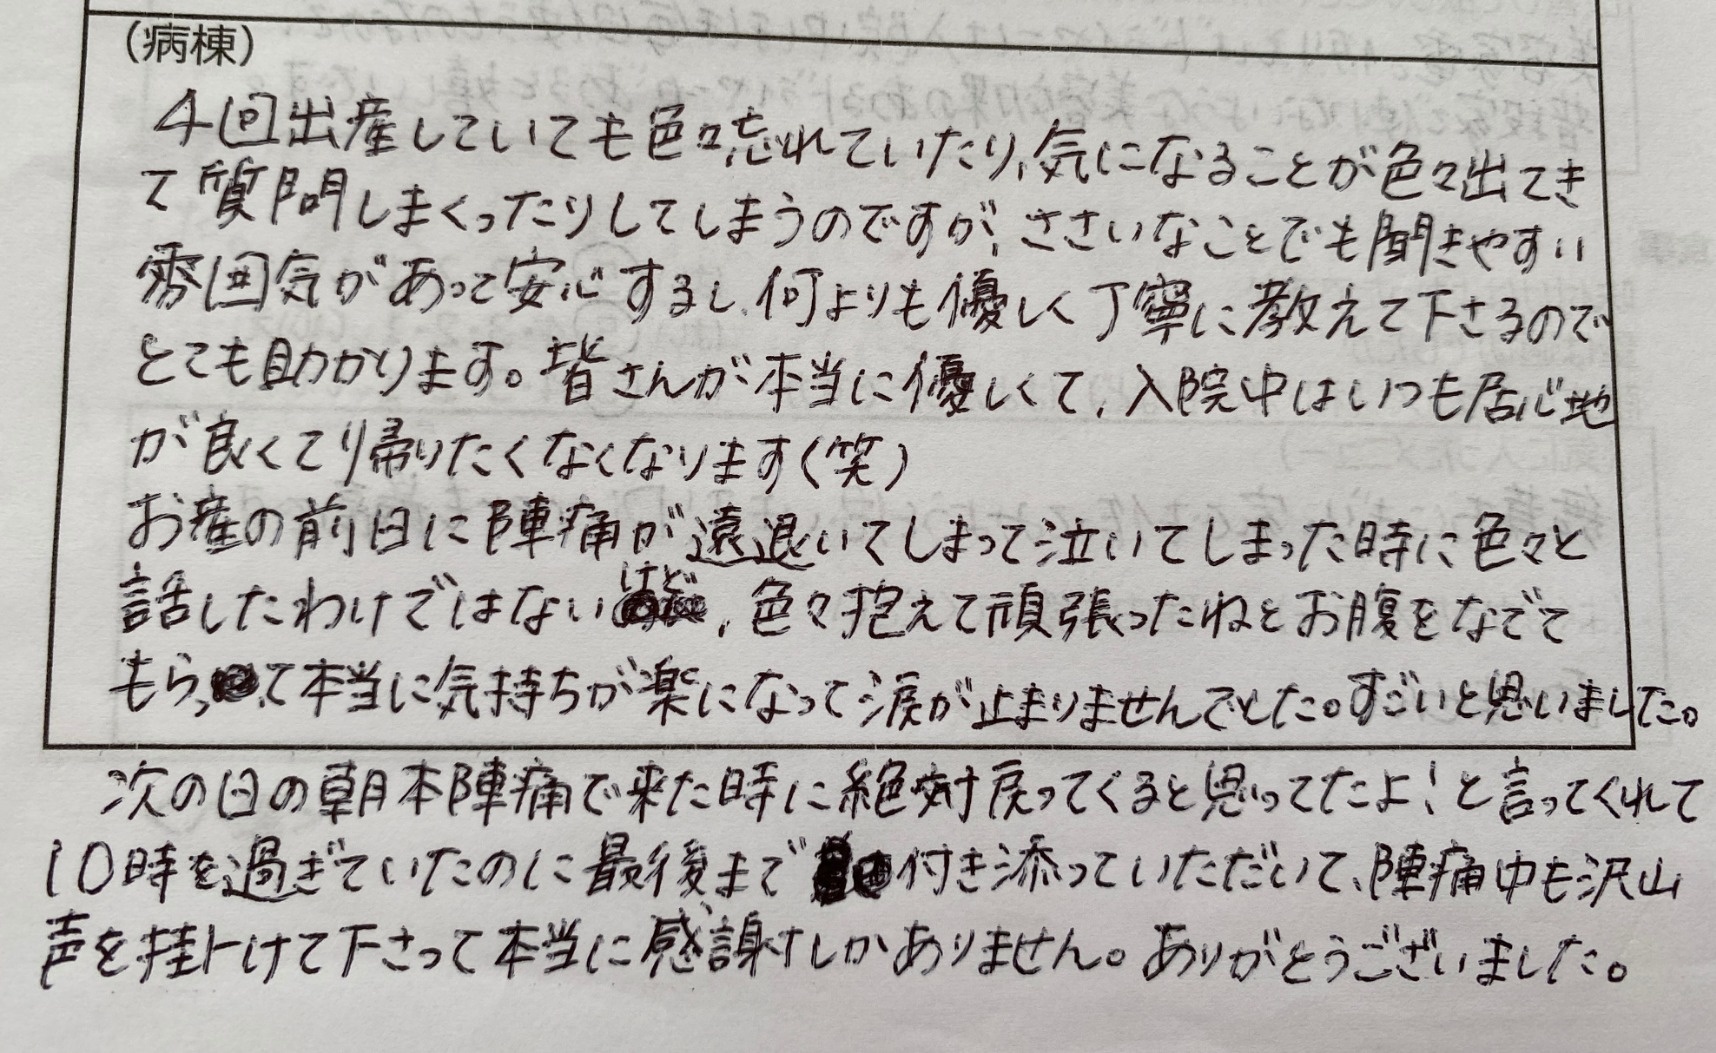 (病棟)
4回出産していても色々忘れていたり、気になることが色々出てき
て質問しまくったりしてしまうのですが、ささいなことでも聞きやすい
雰囲気があって安心するし、何よりも優しく丁寧に教えて下さるので
とても助かります。皆さんが本当に優しくて、入院中はいつも居心地
が良くて帰りたくなくなります(笑)
お産の前日に陣痛が遠退いてしまって泣いてしまった時に色々と
話したわけではないけど、色々抱えて頑張ったねとお腹をなでて
もらって本当に気持ちが楽になって涙が止まりませんでした。すごいと思いました。
次の日の朝本陣痛で来た時に絶対戻ってくると思ってたよ!と言ってくれて
10時を過ぎていたのに最後まで付き添っていただいて、陣痛中も沢山
声を掛けて下さって本当に感謝しかありません。ありがとうございました。